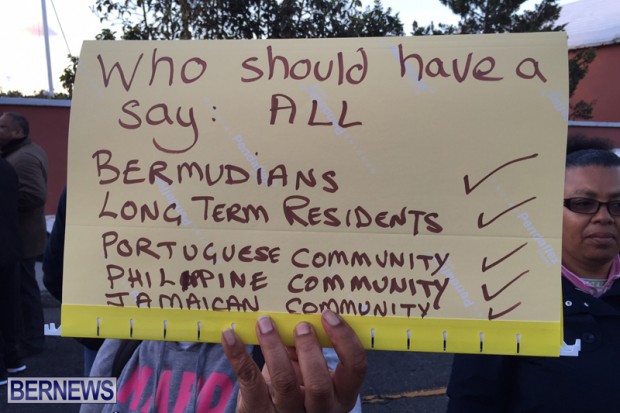 Who should have a
say: ALL
BERMUDIANS ✓
LONG TERM RESIDENTS ✓
PORTUGUESE COMMUNITY ✓
PHILIPINE COMMUNITY ✓
JAMAICAN COMMUNITY ✓
BERNEWS